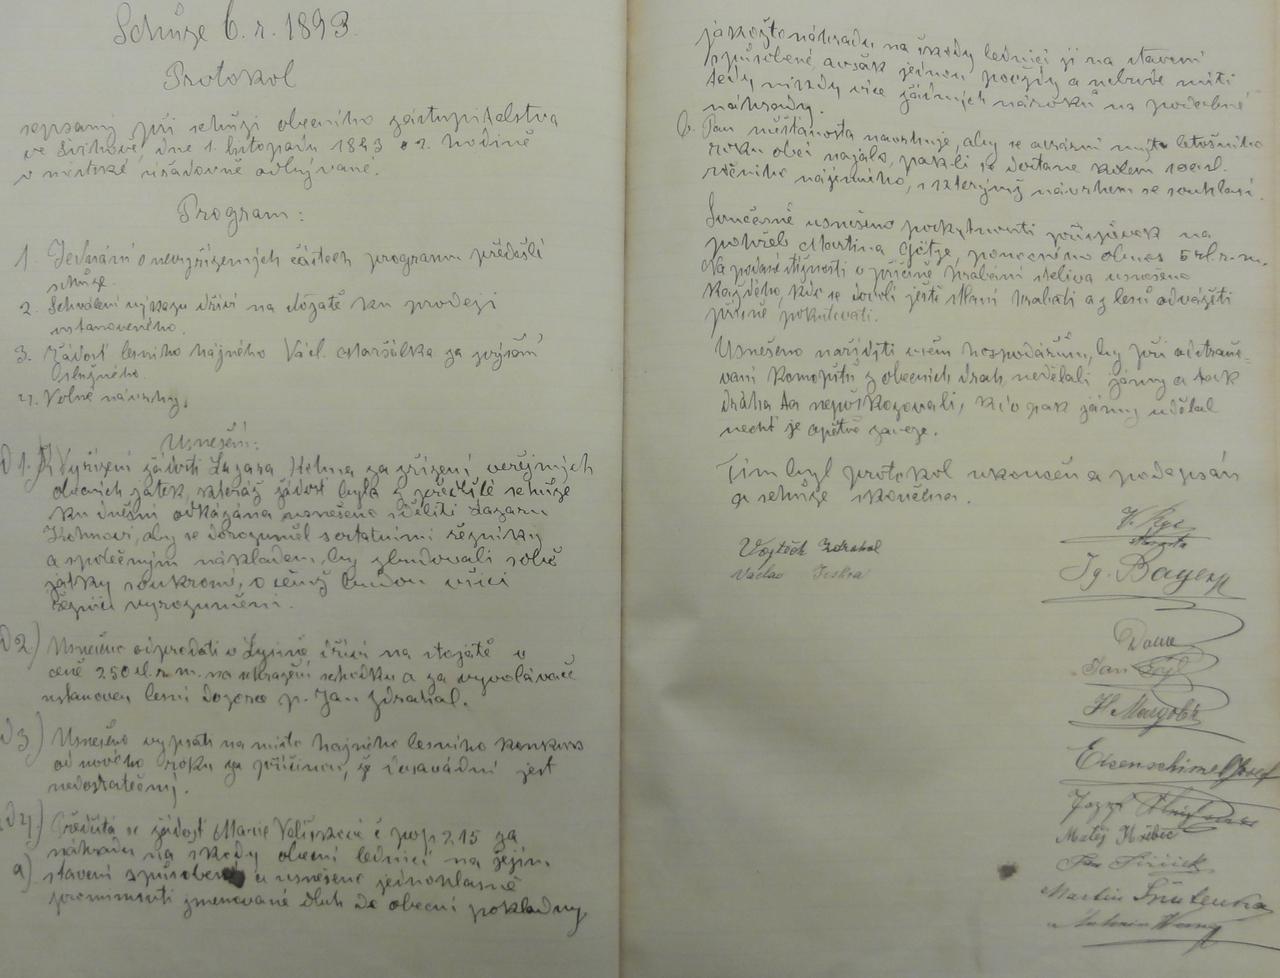 Schůze 6. r. 1893.
Protokol
sepsaný při schůzi obecního zastupitelstva
ve Švihově, dne 1. listopadu 1893 o 2. hodině
v městské úřadovně odbývané.
Program:
1. Jednání o nevyřízených částech programu předešlé
schůze.
2. Schválení výkazu dříví na stojatě ku prodeji
ustanoveného.
3. Žádost lesního hajného Václ. Maršálka za zvýšení
služného.
4. Volné návrhy.
Usnešení:
ad 1.) Vyřízení žádosti Lazara Kohna za zřízení veřejných
obecních jatek, kteráž žádost byla z předešlé schůze
ku dnešní odkázána usnešeno sděliti Lazaru
Kohnovi, aby se dorozuměl s ostatními řezníky
a společným nákladem, by zbudovali sobě
jatky soukromé, o čemž budou všici
řezníci vyrozuměni.
ad 2) Usnešeno odprodati v dříví na stojatě v
ceně 250 zl. r. m. na uhrazení schodku a za vyvolávače
ustanoven lesní dozorce p. Jan Zdrahal.
ad 3) Usnešeno vypsati na místo hajného lesního konkurs
od nového roku za příčinou, že dosavádní jest
nedostatečný.
ad 4) Předčítá se žádost Marie č. pop. 215 za
náhradu na škody obecní lednicí na jejím
a) stavení způsobené a usnešeno jednohlasně
prominouti zmenované dluh do obecní pokladny
jakožto náhradu na škody lednicí jí na stavení
způsobené, avšak jednou pro vždy a nebude míti
tedy nikdy více žádných nároků na podobné
náhrady.
b. Pan měšťanosta navrhuje, aby se letošního
roku obcí najala, pakli se dostane kolem 10 zl.
ročního nájemného, s kterýmž návrhem se souhlasí.
Současně usnešeno poskytnouti příspěvek na
pohřeb Martina Götze, ponocného obnos 5 zl. r. m.
Na podané stížnosti v příčině hrabání steliva usnešeno
každého, kdo se dovolí ještě stlaní hrabati a z lesů odvážeti
přísně pokutovati.
Usnešeno naříditi všem hospodářům, by při odstraňo-
vání kompostů z obecních drah nedělali jámy a tak
dráha ta nepoškozovali, kdo pak jámy udělal
nechť je opětně zaveze.
Tím byl protokol ukončen a podepsán
a schůze skončena.
Vojtěch Zdrahal
Václav Jiskra
Starosta
Ig. Bayer
Jan
Eisenschimel Josef
Matěj Hřebec
Martin
Antonín